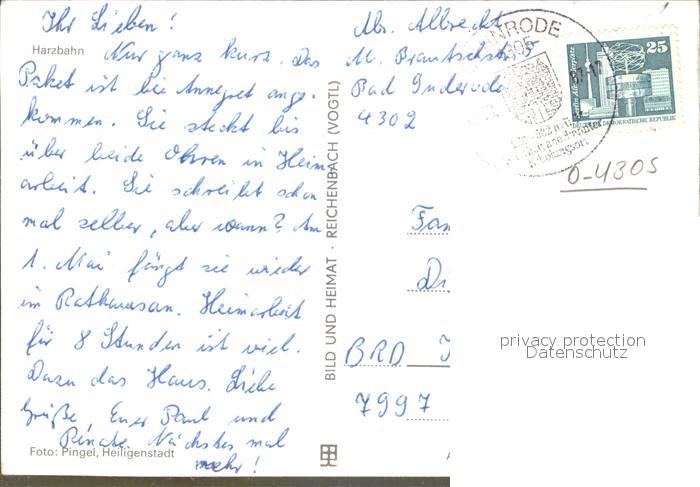 Ihr Lieben!
Harzbahn
Nur ganz kurz. Das
Paket ist bei Annegret ange-
kommen. Sie steckt bis
über beide Ohren in Heim-
arbeit. Sie schreibt schon
mal selber, aber wann? Am
1. Mai fängt sie wieder
im Rathaus an. Heimarbeit
für 8 Stunden ist viel.
Dazu das Haus. Liebe
Grüße, Euer Paul und
Renate. Nächstes mal
mehr!
Foto: Pingel, Heiligenstadt
BILD UND HEIMAT · REICHENBACH (VOGTL)
Abs. Albrecht
M. Brautzschstr.
Bad Suderode
4302
NRODE
4305
25
DEUTSCHE DEMOKRATISCHE REPUBLIK
O-4305
Fam
BRD
7997
privacy protection
Datenschutz